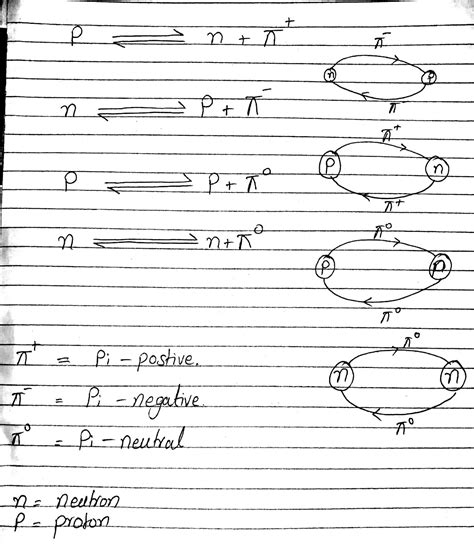 P ⇌ n + π⁺
π⁻
n P
π
n ⇌ P + π⁻
π⁺
P n
π⁺
P ⇌ P + π⁰
n ⇌ n + π⁰
π⁰
P n
π⁰
π⁺ = Pi - postive.
π⁰
n n
π⁰
π⁻ = Pi - negative.
π⁰ = Pi - neutral
n = neutron
P = proton